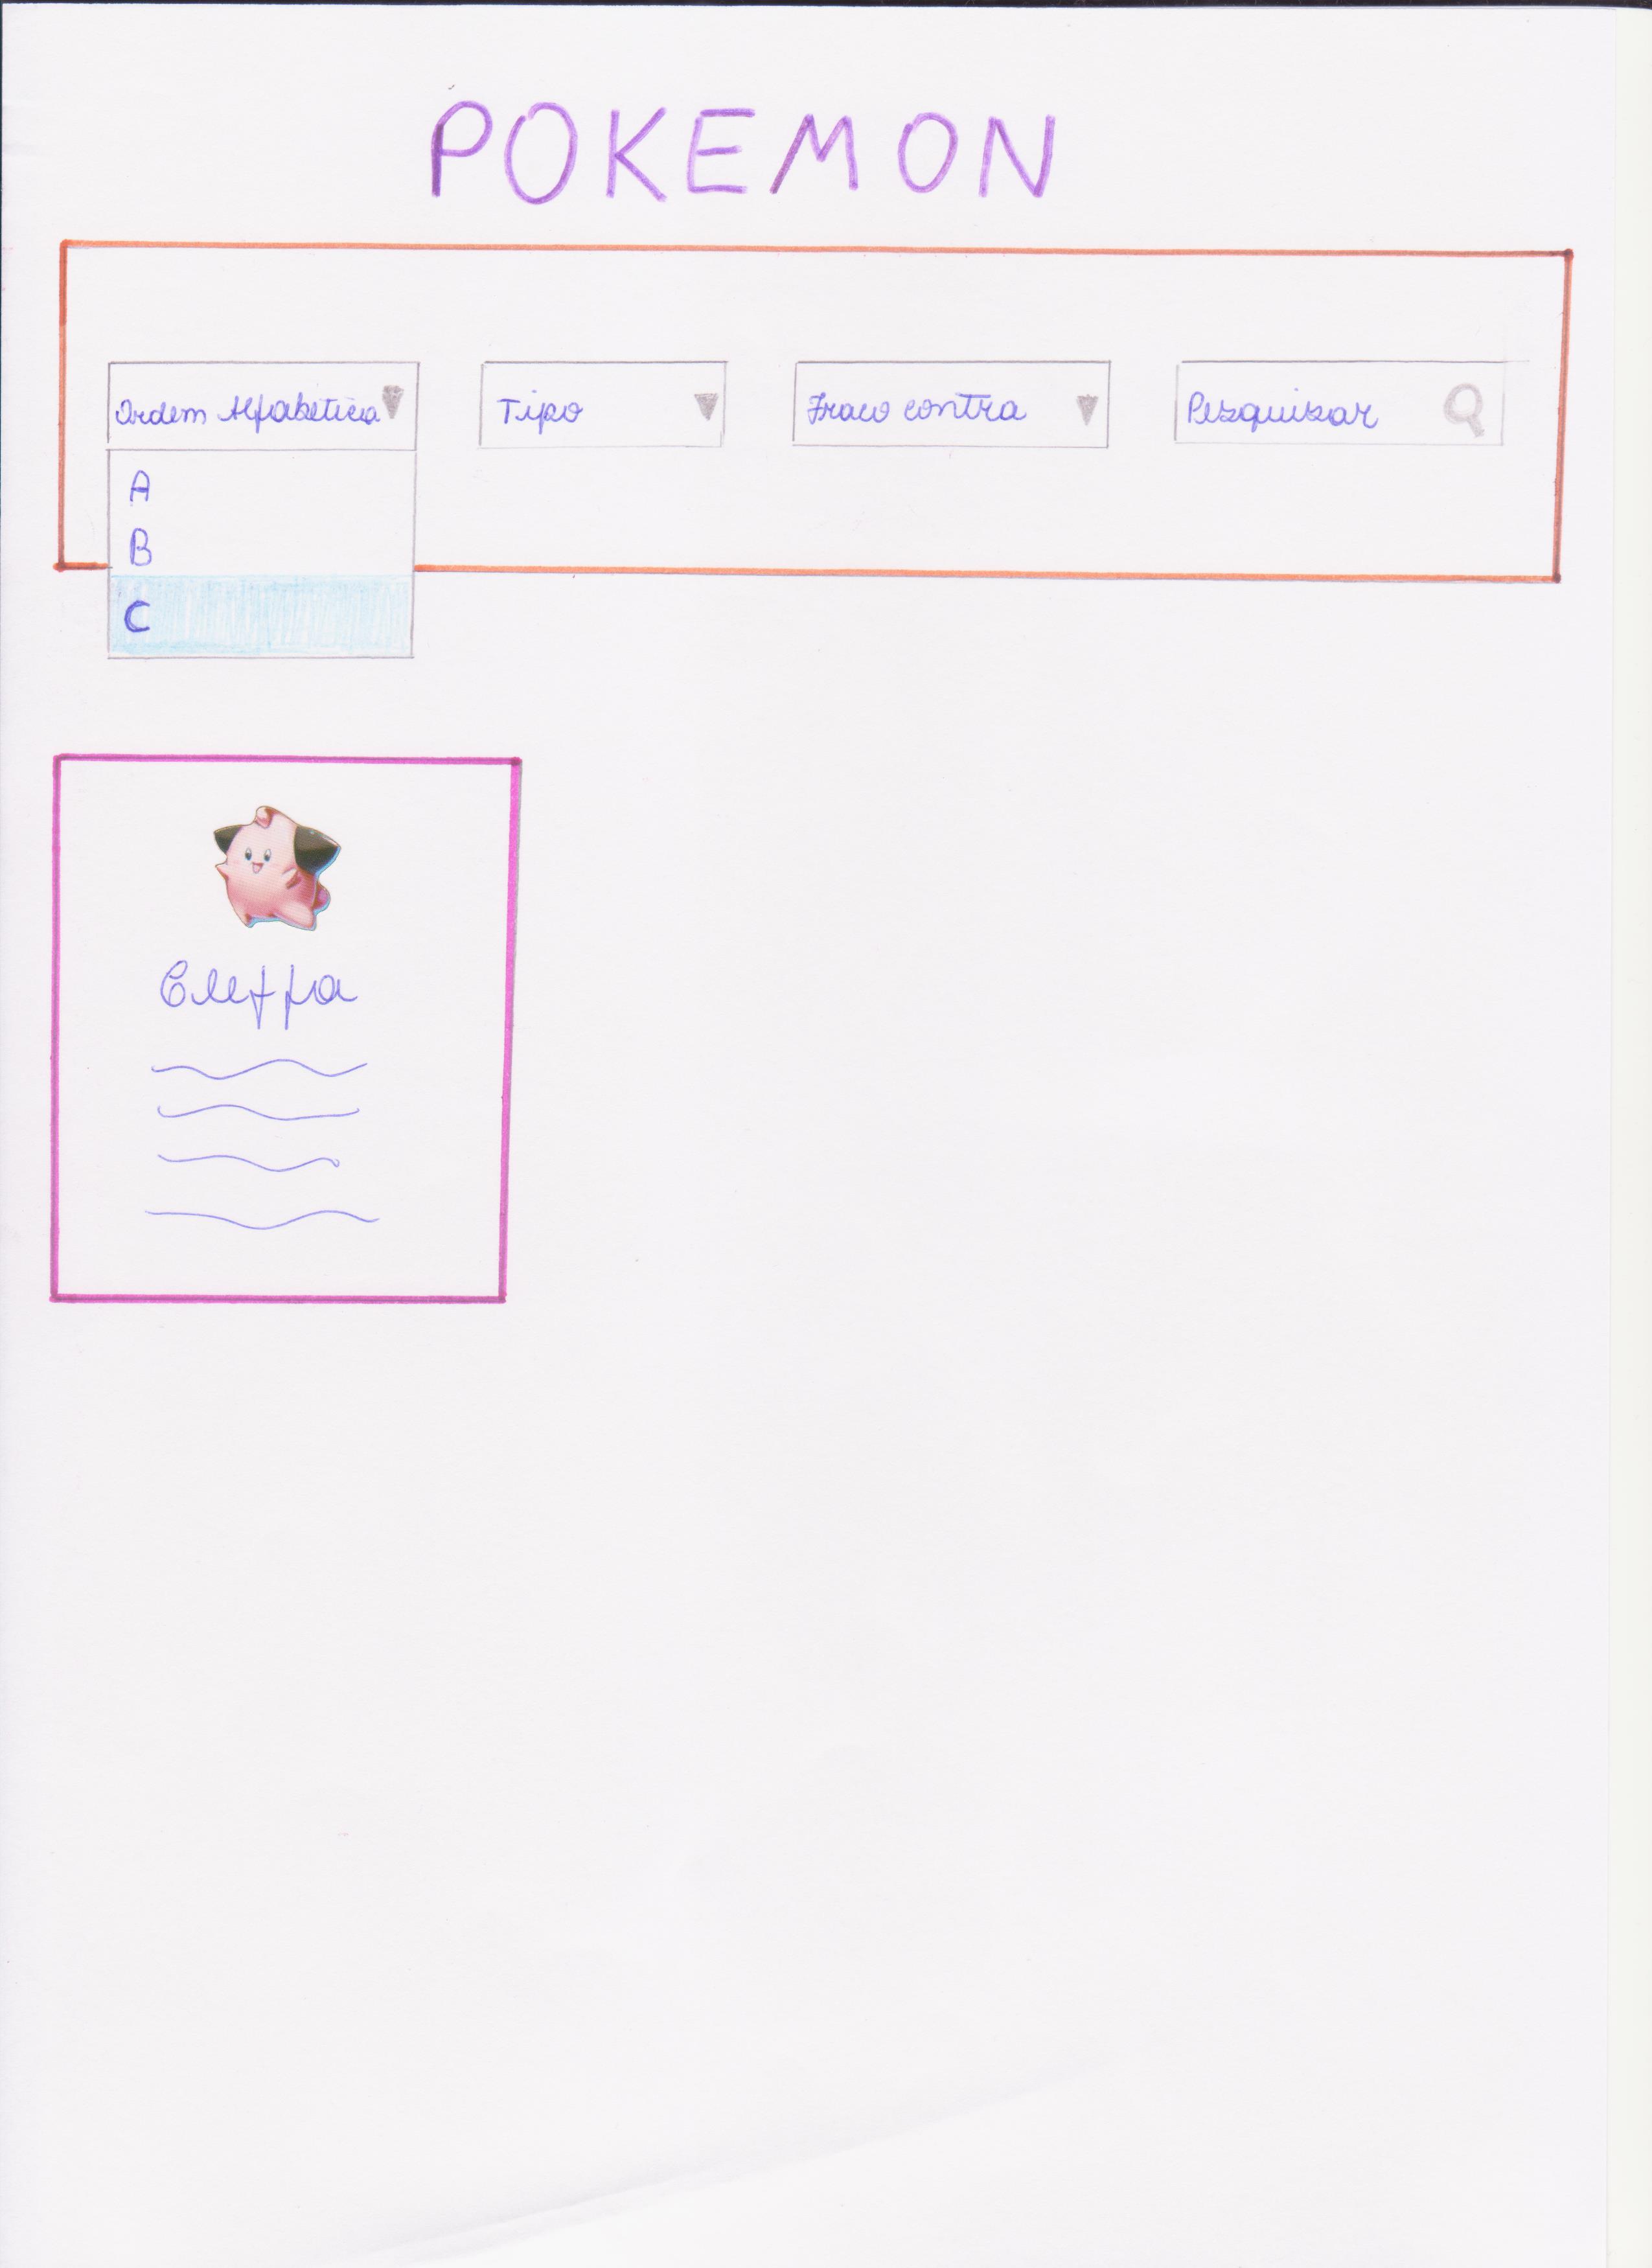 POKEMON
Ordem Alfabética Tipo Fraco contra Pesquisar
A
B
C
Cleffa